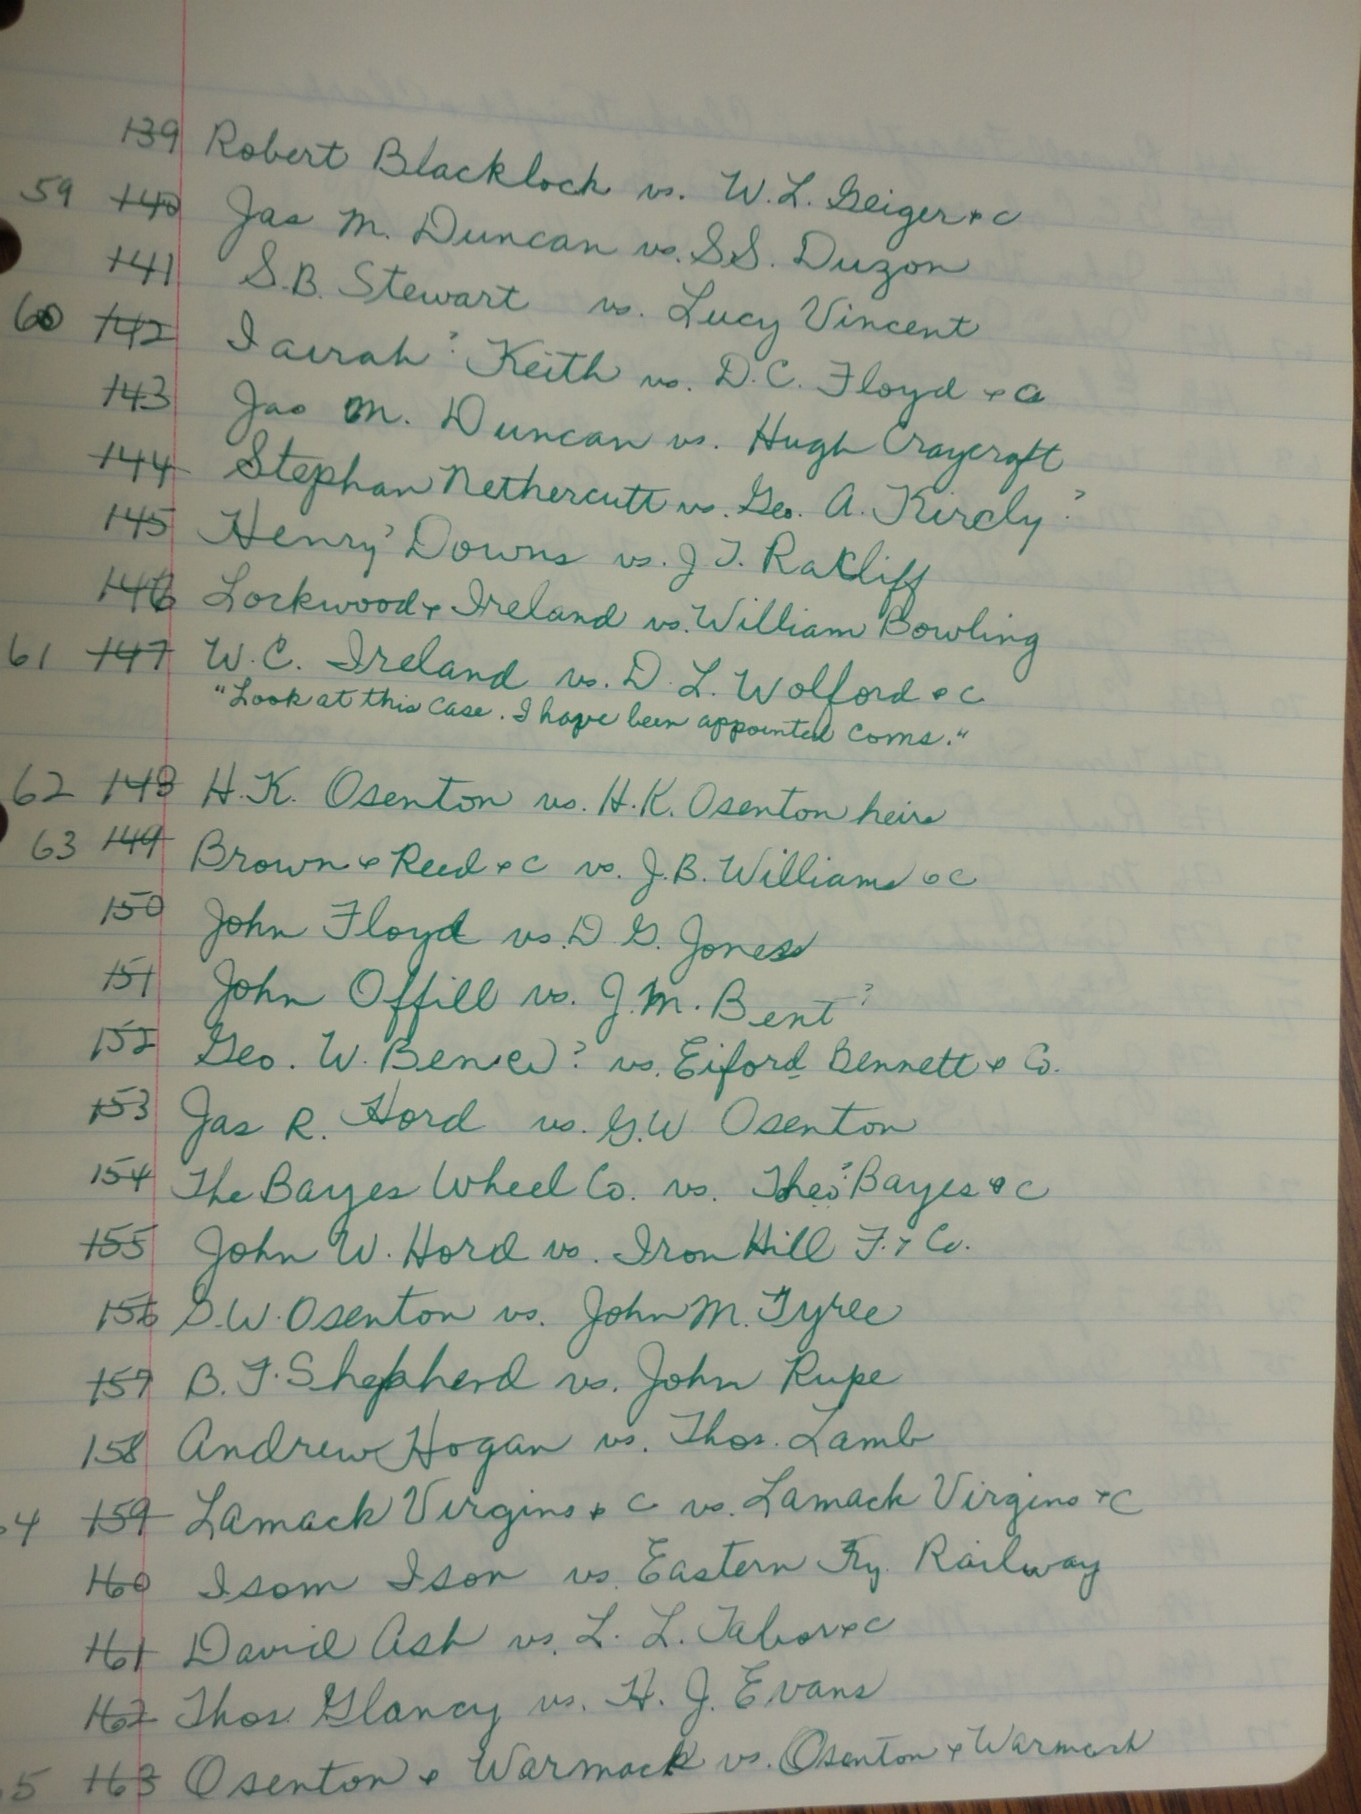 139 Robert Blacklock vs. W. L. Geiger & C
59 140 Jas M. Duncan vs. S.S. Duzon
141 S.B. Stewart vs. Lucy Vincent
60 142 Iairah? Keith vs. D.C. Floyd & Co
143 Jas M. Duncan vs. Hugh Craycraft
144 Stephan Nethercutt vs. Geo. A. Kirdy?
145 Henry? Downs vs. J T. Ratliff
146 Lockwood & Ireland vs. William Bowling
61 147 W. C. Ireland vs. D. L. Wolford & C
"Look at this case. I have been appointed coms."
62 148 H. K. Osenton vs. H.K. Osenton heirs
63 149 Brown & Reed & C vs. J.B. Williams & C
150 John Floyd vs. D G. Jones
151 John Offill vs. J.M. Bent?
152 Geo. W. Bene(e)? vs. Eiford Bennett & Co.
153 Jas R. Hord vs. G.W Osenton
154 The Bayes Wheel Co. vs. Theo? Bayes & C
155 John W. Hord vs. Iron Hill F. & Co.
156 G.W. Osenton vs. John M. Tyree
157 B. F. Shepherd vs. John Rupe
158 Andrew Hogan vs. Thos. Lamb
4 159 Lamack Virgins & C vs. Lamack Virgins & C
160 Isom Ison vs. Eastern Ky. Railway
161 David Ash vs. L. L. Tabor & C
162 Thos. Glancy vs. H. J. Evans
5 163 Osenton & Warmack vs. Osenton & Warmack